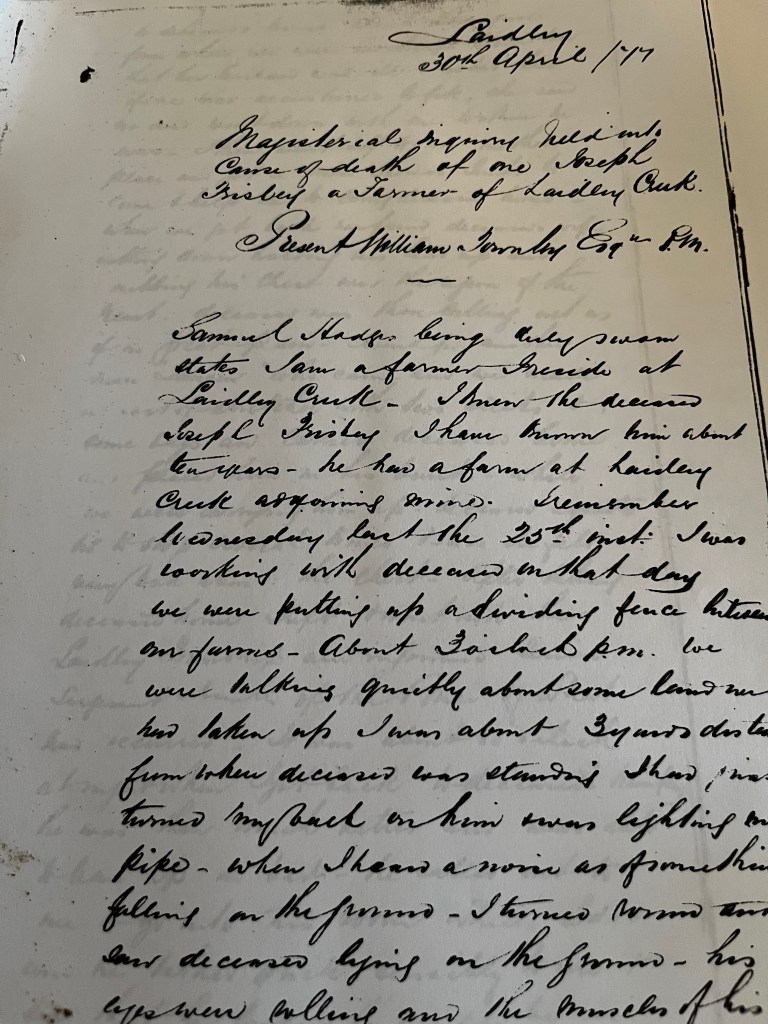 Laidley
30th April /77
Magisterial Inquiry held into
cause of death of one Joseph
Frisby a Farmer of Laidley Creek.
Present William Townley Esqre P.M.
Samuel Hodge being duly sworn
states I am a farmer I reside at
Laidley Creek - I knew the deceased
Joseph Frisby I have known him about
ten years - he has a farm at Laidley
Creek adjoining mine. I remember
Wednesday last the 25th inst: I was
working with deceased on that day
we were putting up a dividing fence between
our farms - About 3 o'clock p.m. we
were talking quietly about some land we
had taken up I was about 3 yards dista
from where deceased was standing I had just
turned my back on him & was lighting my
pipe - when I heard a noise as of somethin
falling on the ground - I turned round and
saw deceased lying on the ground - his
eyes were rolling and the muscles of his